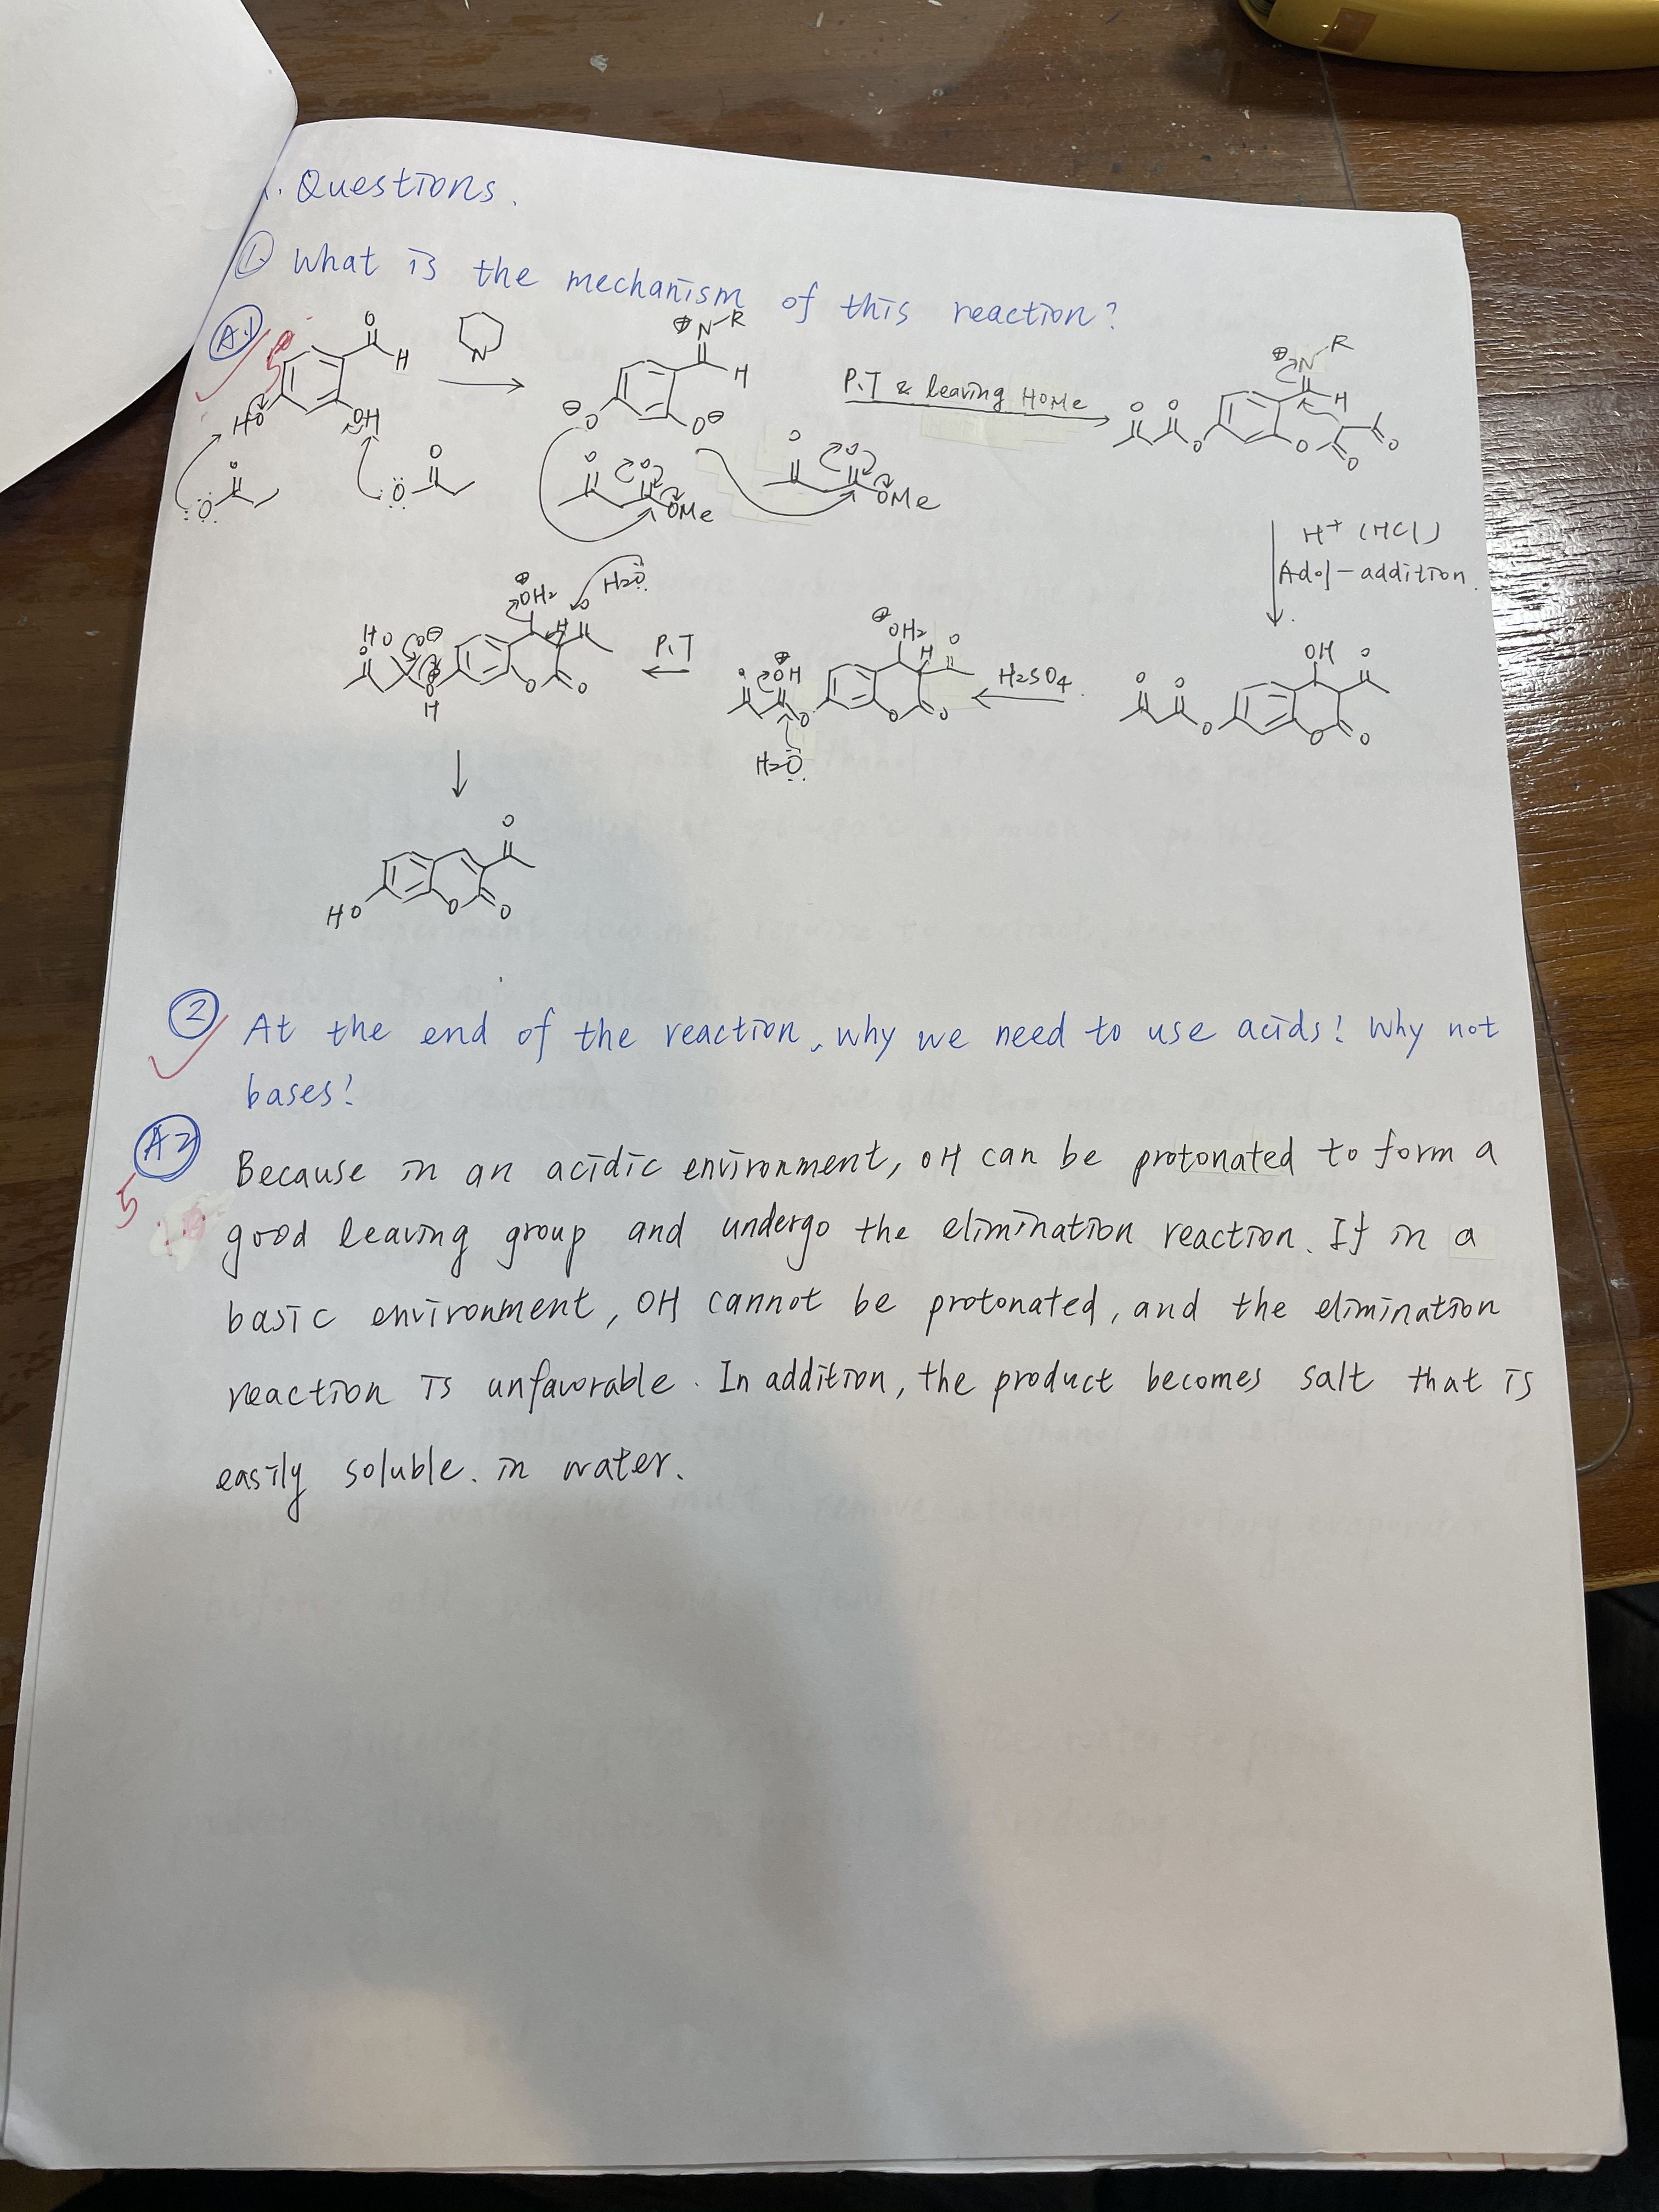 1. Questions.
① What is the mechanism of this reaction?
A.1 5
O H HO OH
N
⊕ N-R H O⊖ O⊖
P.T & leaving HOMe
⊕ N-R H O O O O O O
O O
O O OMe
O O OMe
H+ (HCl)
Adol-addition
OH O O O O O O
H2SO4
⊕OH2 H O O ⊕OH O O O
H2O
P.T
⊕OH2 H2O H O HO O⊖ O O O H
O HO O O
② At the end of the reaction, why we need to use acids! Why not
bases!
A2
5
Because in an acidic environment, OH can be protonated to form a
good leaving group and undergo the elimination reaction. If in a
basic environment, OH cannot be protonated, and the elimination
reaction is unfavorable. In addition, the product becomes salt that is
easily soluble. in water.